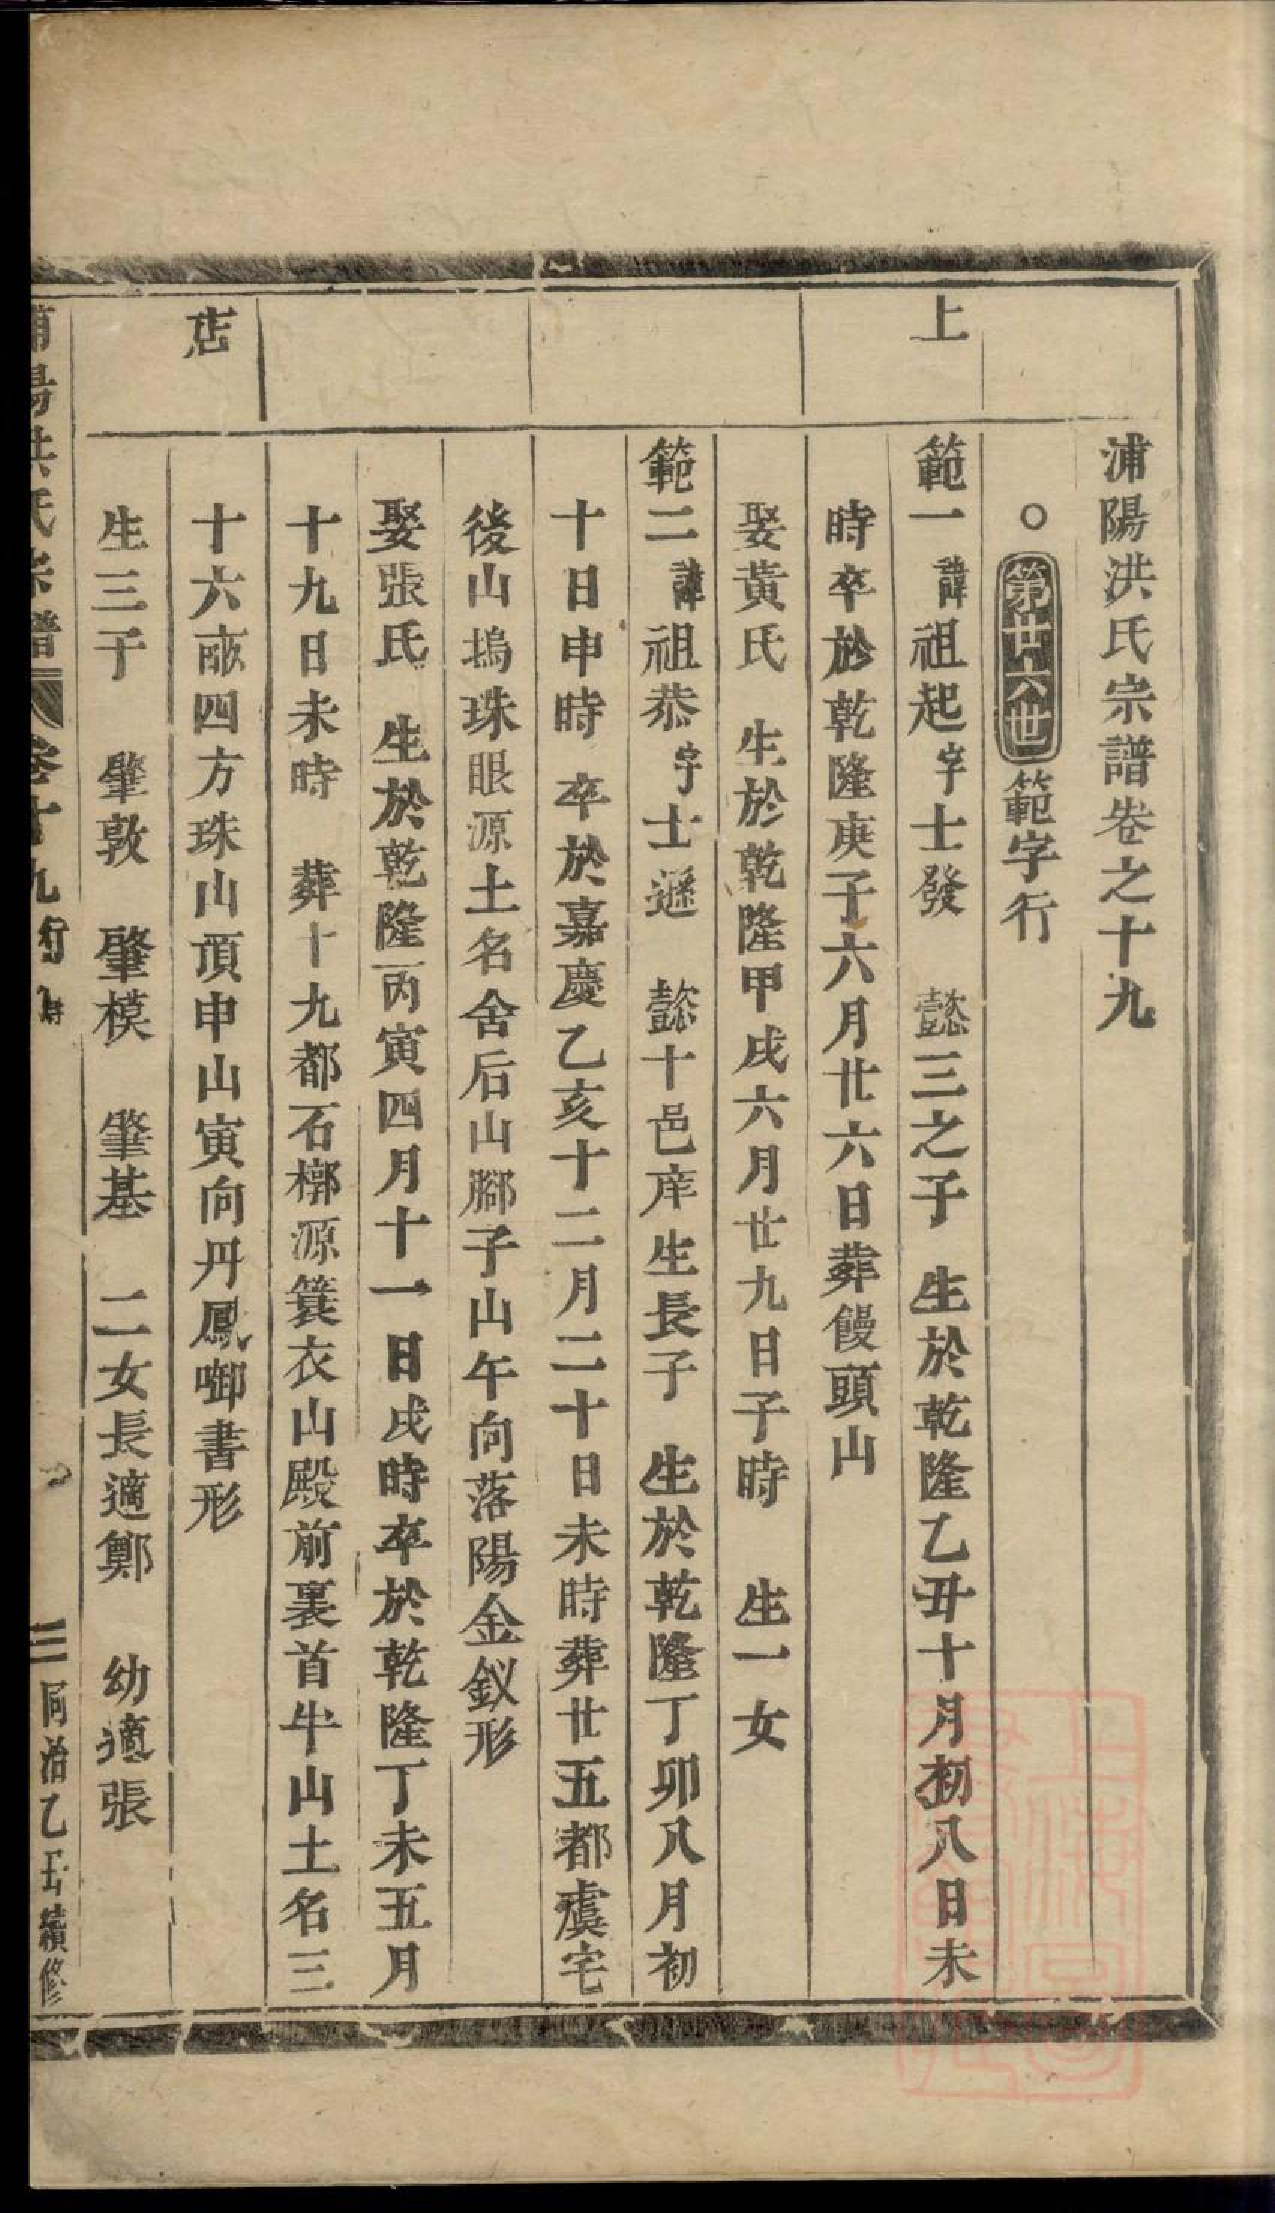 浦陽洪氏宗譜卷之十九
○第廿六世範字行
上
範一諱祖起字士發　懿三之子　生於乾隆乙丑十月初八日未
時卒於乾隆庚子六月廿六日葬饅頭山
娶黃氏　生於乾隆甲戌六月廿九日子時　生一女
範二諱祖恭字士遜　懿十邑庠生長子　生於乾隆丁卯八月初
十日申時　卒於嘉慶乙亥十二月二十日未時葬廿五都虞宅
後山塢珠眼源土名舍后山腳子山午向落陽金釵形
娶張氏　生於乾隆丙寅四月十一日戌時卒於乾隆丁未五月
十九日未時　葬十九都石槨源簑衣山殿前裏首牛山土名三
店
十六畝四方珠山頂申山寅向丹鳳啣書形
生三子　肇敦　肇模　肇基　二女長適鄭　幼適張
浦陽洪氏宗譜　卷十九行傳　三　同治乙丑續修